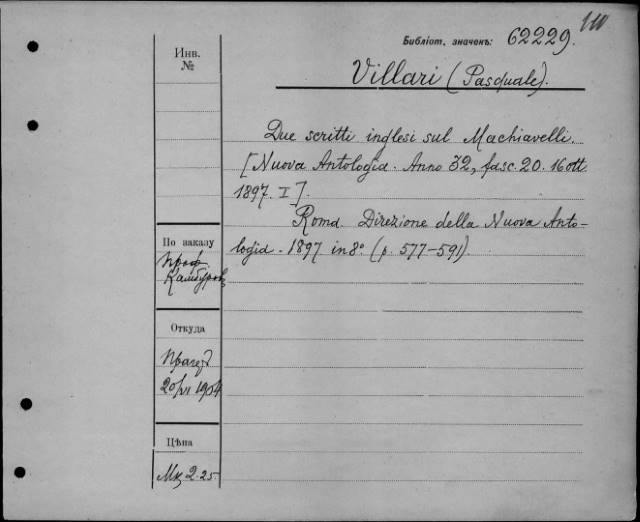 Библіот. значекъ: 62229.
Инв.
№
Villari (Pasquale).
Due scritti inglesi sul Machiavelli.
[Nuova Antologia. Anno 32, fasc. 20. 16 ott
1897. I].
Roma. Direzione della Nuova Anto-
logia. 1897 in 8° (p. 577-591).
По заказу
Проф
Откуда
20/VI 1904
Цѣна
Мк 2.25.